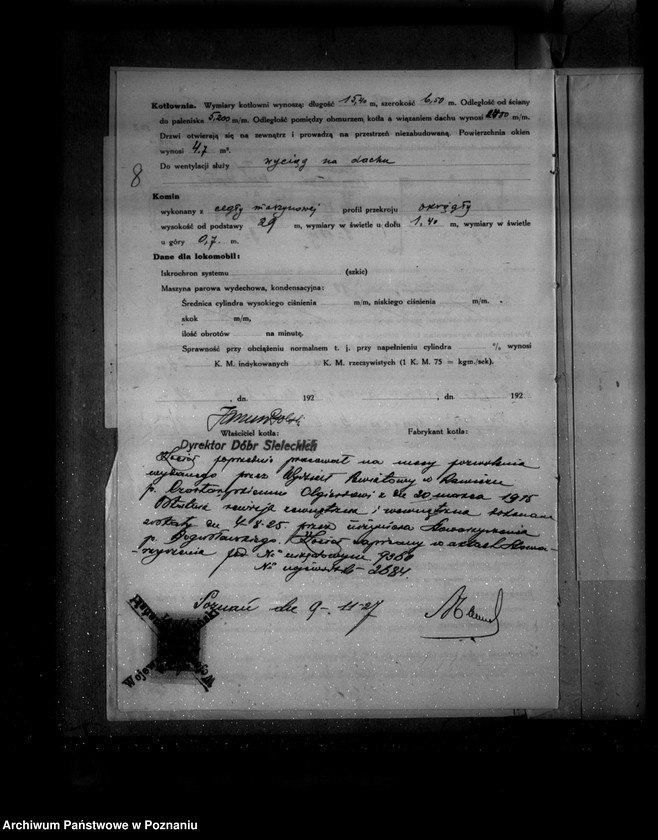 Kotłownia. Wymiary kotłowni wynoszą: długość 15,40 m, szerokość 6,50 m. Odległość od ściany
do paleniska 5,200 m/m. Odległość pomiędzy obmurzem kotła a wiązaniem dachu wynosi 2400 m/m.
Drzwi otwierają się na zewnątrz i prowadzą na przestrzeń niezabudowaną. Powierzchnia okien
wynosi 4,7 m².
8
Do wentylacji służy wyciąg na dachu
Komin
wykonany z cegły maszynowej profil przekroju okrągły
wysokość od podstawy 29 m, wymiary w świetle u dołu 1.40 m, wymiary w świetle
u góry 0,7. m.
Dane dla lokomobil:
Iskrochron systemu (szkic)
Maszyna parowa wydechowa, kondensacyjna:
Średnica cylindra wysokiego ciśnienia m/m, niskiego ciśnienia m/m.
skok m/m,
ilość obrotów na minutę.
Sprawność przy obciążeniu normalnem t. j. przy napełnieniu cylindra % wynosi
K. M. indykowanych K. M. rzeczywistych (1 K. M. 75 = kgm./sek).
, dn. 192 , dn. 192
Właściciel kotła: Fabrykant kotła:
Dyrektor Dóbr Sieleckich
Kocioł poprzednio pracował na mocy pozwolenia
wydanego przez Wydział Powiatowy w
p. Olgierdowi z dn 20 marca 1915
rewizja zewnętrzna i wewnętrzna dokonana
została dn 4.8.25. przez inżyniera Stowarzyszenia
p. Bogusławskiego. Kocioł zapisany w aktach Stowa-
-rzyszenia pod No urzędowym 9360
No wojewódzk- 2684.
Poznań dn 9-11-27
Archiwum Państwowe w Poznaniu